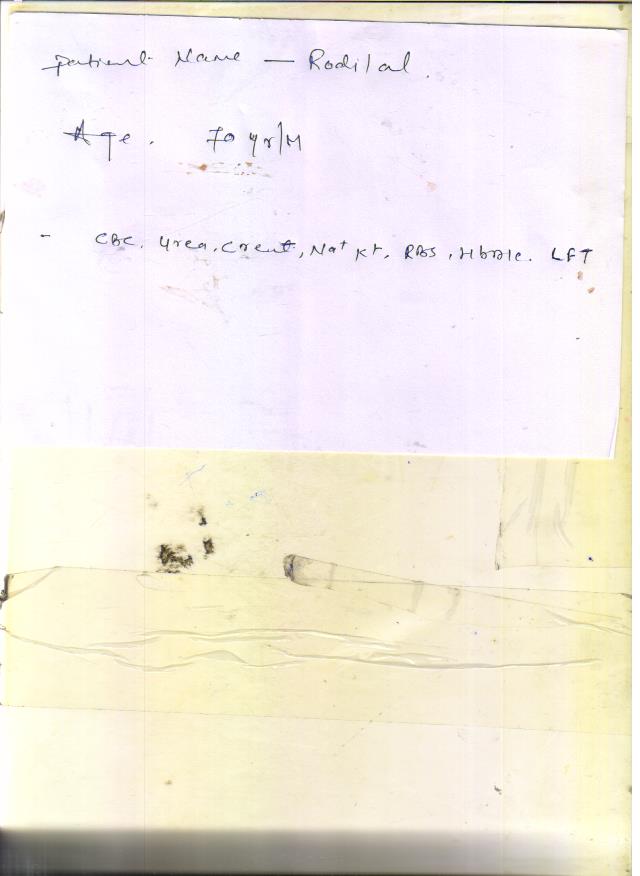 Patient Name — Rodilal.
Age. 70 yr/M
- CBC, Urea, Creat, Na+ K+, RBS, HbA1c. LFT